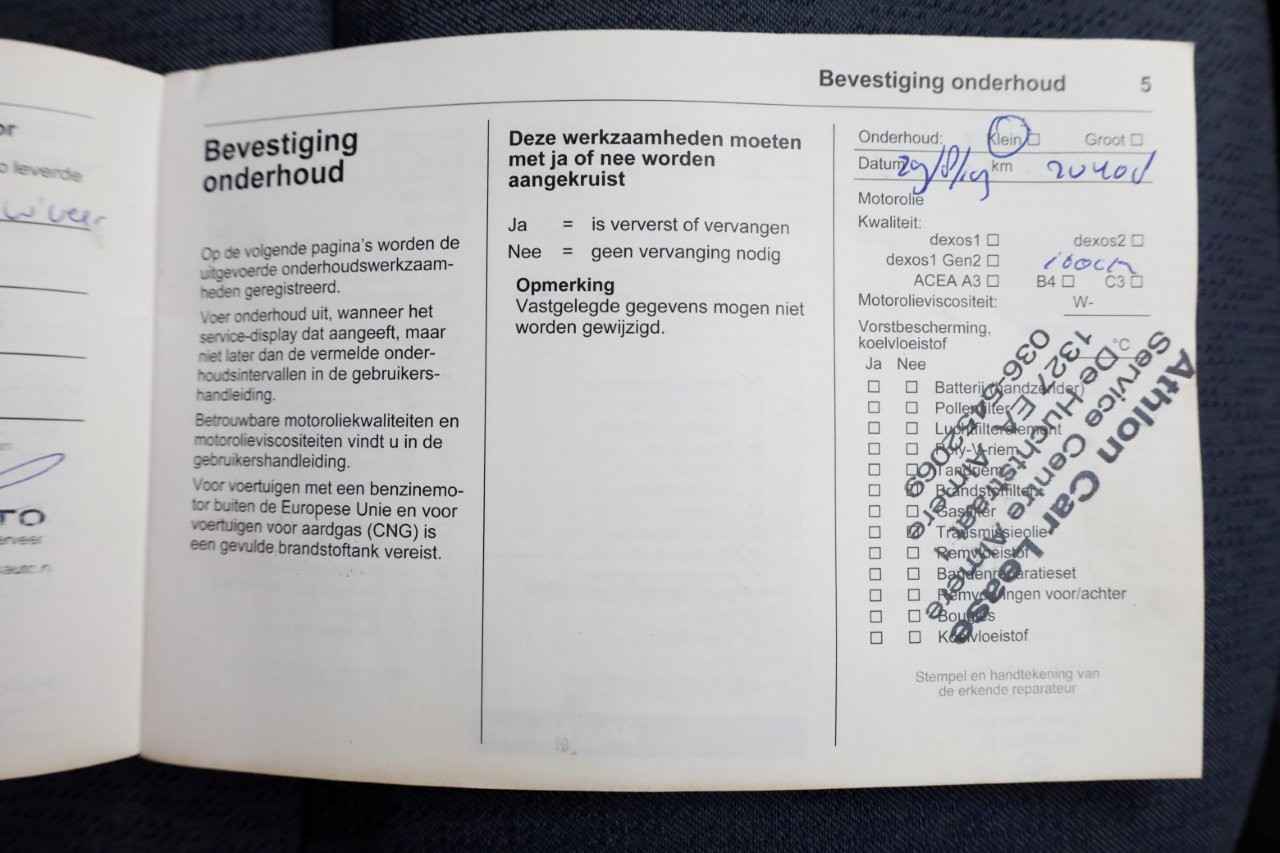 or
o leverde
w'veer
TO
erveer
auto.n
Bevestiging onderhoud 5
Bevestiging
onderhoud
Op de volgende pagina's worden de
uitgevoerde onderhoudswerkzaam-
heden geregistreerd.
Voer onderhoud uit, wanneer het
service-display dat aangeeft, maar
niet later dan de vermelde onder-
houdsintervallen in de gebruikers-
handleiding.
Betrouwbare motoroliekwaliteiten en
motorolieviscositeiten vindt u in de
gebruikershandleiding.
Voor voertuigen met een benzinemo-
tor buiten de Europese Unie en voor
voertuigen voor aardgas (CNG) is
een gevulde brandstoftank vereist.
Deze werkzaamheden moeten
met ja of nee worden
aangekruist
Ja = is ververst of vervangen
Nee = geen vervanging nodig
Opmerking
Vastgelegde gegevens mogen niet
worden gewijzigd.
Onderhoud: Klein □ Groot □
Datum 29/8/19 km
Motorolie
Kwaliteit:
dexos1 □ dexos2 □
dexos1 Gen2 □
ACEA A3 □ B4 □ C3 □
Motorolieviscositeit: W-
Vorstbescherming,
koelvloeistof °C
Ja Nee
□ □ Batterij (handzender)
□ □ Pollenfilter
□ □ Luchtfilterelement
□ □ Poly-V-riem
□ □ Tandriem
□ □ Brandstoffilter
□ □ Gasfilter
□ □ Transmissieolie
□ □ Remvloeistof
□ □ Bandenreparatieset
□ □ Remvoeringen voor/achter
□ □ Bougies
□ □ Koelvloeistof
Stempel en handtekening van
de erkende reparateur
Athlon Car Lease
Service Centre Almere
De Huchtstraat
1327 EA Almere
036-5452069